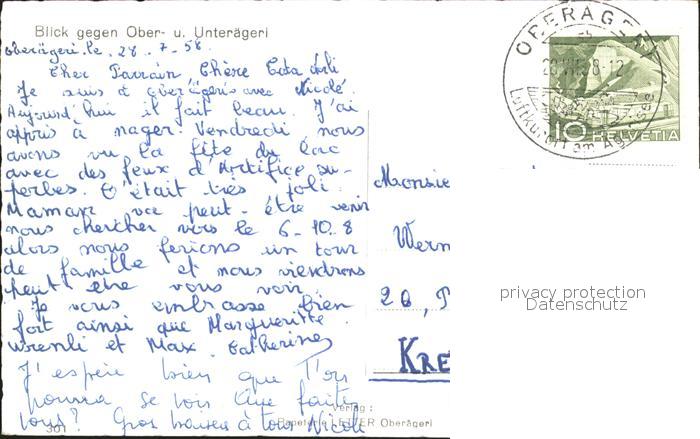 Blick gegen Ober- u. Unterägeri
Oberägeri le. 28-7-58.
Cher Parrain Chère Tata
Je suis à Oberägeris avec Nicole.
Aujourd'hui il fait beau. J'ai
appris à nager. Vendredi nous
avons vu la fête du lac
avec des feux d'Artifice su-
perbes. C'était très joli.
Maman va peut-être venir
nous chercher vers le 6-10.8
alors nous ferions un tour
de famille et nous viendrons
peut être vous voir.
Je vous embrasse bien
fort ainsi que Margueritte
et Max. Catherine
J'espère bien que l'on
pourra se voir Que faites
vous? Gros baisers à tous Nicole
301
Verlag:
Papeterie Oberägeri
OBERÄGERI
28.VII.58-12
Luftkurort am Ägerisee
10 HELVETIA
Monsie
Wern
26, P
KRE
privacy protection
Datenschutz